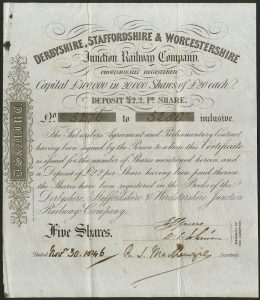 DERBYSHIRE, STAFFORDSHIRE & WORCESTERSHIRE
Junction Railway Company.
PROVISIONALLY REGISTERED.
Capital £400,000 in 20,000 Shares of £20 each.
DEPOSIT £2.2. Pr. SHARE.
No. to inclusive.
The Subscribers Agreement and Parliamentary Contract
having been signed by the Person to whom this Certificate
is issued for the number of Shares mentioned hereon and
a Deposit of £2.2 per Share having been paid thereon
the Shares have been registered in the Books of the
Derbyshire, Staffordshire & Worcestershire Junction
Railway Company;
Five Shares.
Dated Nov. 30. 1846 R. S. Mackenzie, Secretary.